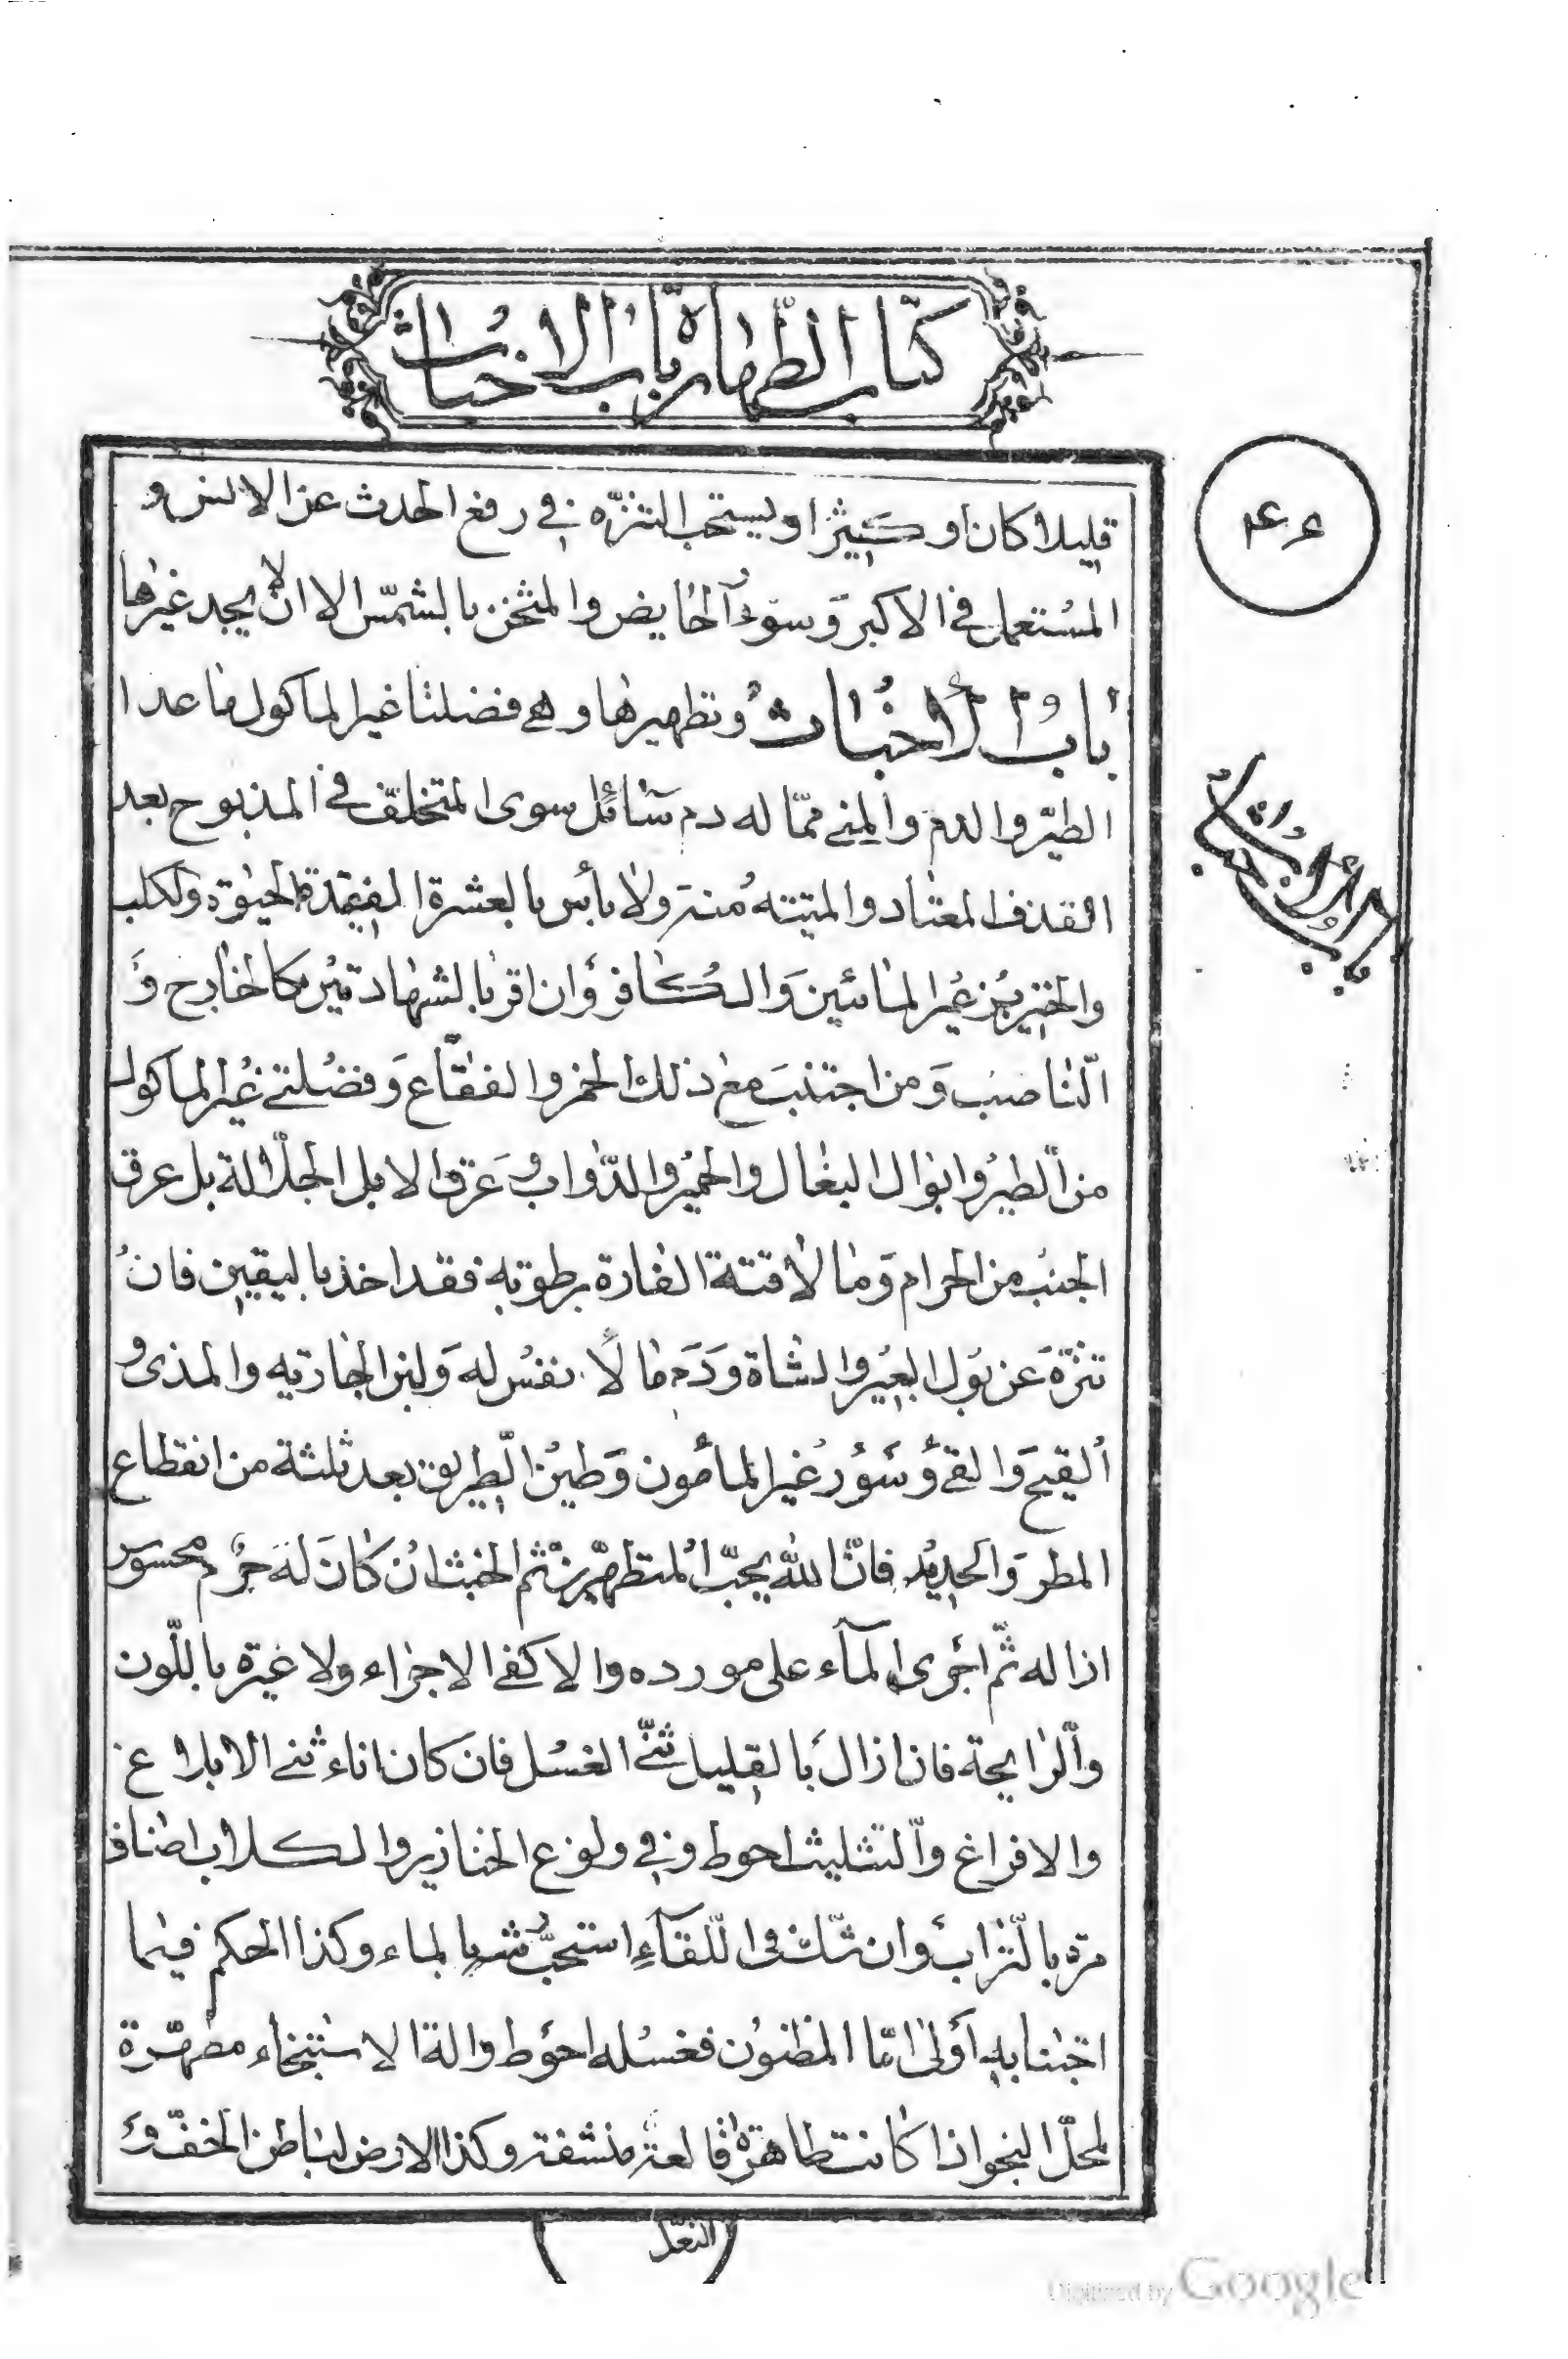 كتاب الطهارة باب الاخباث
۴۴
قليلا كان او كثيرا ويستحب التنزه في رفع الحدث عن الاسن و
المستعمل في الاكبر وسؤر الحايض والمثخن بالشمس الا ان لا يجد غيرها
باب الاخباث وتطهيرها وهي فضلتا غير الماكول ما عدا
الطير والدم والمني مما له دم سائل سوى المتخلف في المذبوح بعد
القذف المعتاد والميتة منه ولا بأس بالعشرة الفقيدة الحيوة والكلب
والخنزير غير المائيين والكافر وان اقر بالشهادتين كالخارج و
الناصب ومن اجتنب مع ذلك الخمر والفقاع وفضلتي غير الماكول
من الطير وابوال البغال والحمير والدواب وعرق الابل الجلالة بل عرق
الجنب من الحرام وما لاقته الفارة برطوبة فقد اخذ باليقين فان
تنزه عن بول البعير والشاة ودم ما لا نفس له ولبن الجارية والمذى و
القيح والقئ وسؤر غير المأمون وطين الطريق بعد ثلثة من انقطاع
المطر والحديد فان الله يحب المتطهرين ثم الخبث ان كان له جرم محسوس
ازاله ثم اجرى الماء على مورده والا كفى الاجراء ولا عبرة باللون
والرايحة فان ازال بالقليل ثنى الغسل فان كان اناء ثنى الابلاغ
والافراغ والتثليث احوط وفي ولوغ الخنازير والكلاب اضاف
مرة بالتراب وان شك في اللقاء استحب رشه بالماء وكذا الحكم فيما
اجتنابه اولى اما المظنون فغسله احوط والة الاستنجاء مطهرة
لمحل النجو اذا كانت طاهرة قالعة منشفة وكذا الارض لباطن الخف و
باب الاخباث
النعل
Digitized by Google